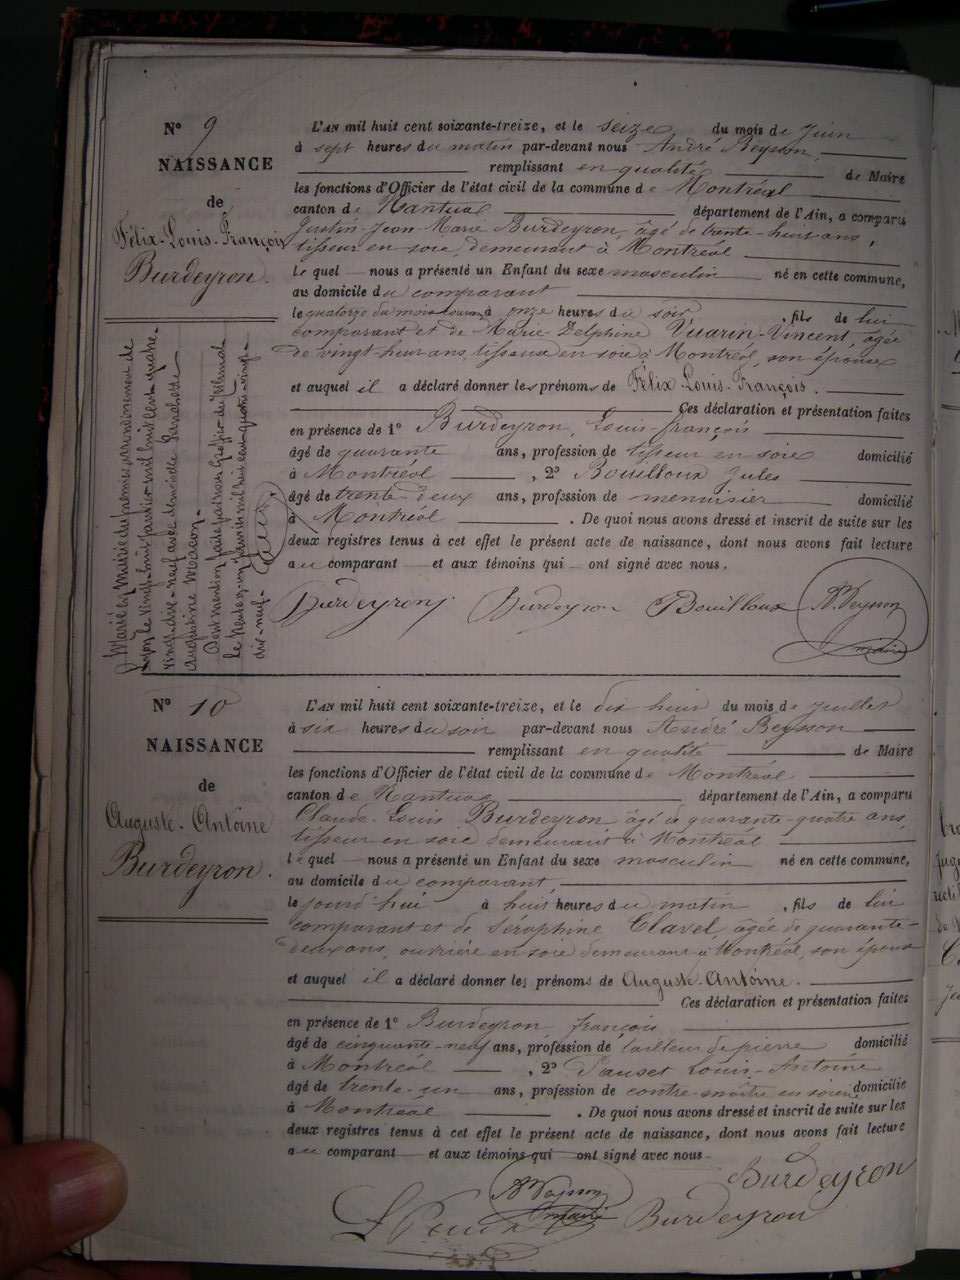 N° 9
NAISSANCE
de
Félix-Louis-François
Burdeyron.
L'AN mil huit cent soixante-treize, et le seize du mois de Juin
à sept heures du matin par-devant nous André Beysson,
remplissant en qualité de Maire
les fonctions d'Officier de l'état civil de la commune de Montréal
canton de Nantua département de l'Ain, a comparu
Justin-Jean-Marie Burdeyron, âgé de trente-huit ans,
tisseur en soie, demeurant à Montréal
le quel nous a présenté un Enfant du sexe masculin né en cette commune,
au domicile du comparant
le quatorze du mois courant à onze heures du soir, fils de lui
comparant et de Marie Delphine Vuarin-Vincent, âgée
de vingt-huit ans, tisseuse en soie à Montréal, son épouse
et auquel il a déclaré donner les prénoms de Félix-Louis-François.
Ces déclaration et présentation faites
en présence de 1° Burdeyron, Louis-François
âgé de quarante ans, profession de tisseur en soie domicilié
à Montréal, 2° Bouilloux Jules
âgé de trente-deux ans, profession de menuisier domicilié
à Montréal. De quoi nous avons dressé et inscrit de suite sur les
deux registres tenus à cet effet le présent acte de naissance, dont nous avons fait lecture
au comparant et aux témoins qui ont signé avec nous.
Burdeyron J Burdeyron Bouilloux A. Beysson
maire
Marié en Mairie du premier arrondissement de
Lyon le vingt-huit janvier mil huit cent quatre-
vingt-dix-neuf avec demoiselle
Augustine Macon.
Dont mention faite par nous Greffier du Tribunal
le trente un janvier mil huit cent quatre-vingt-
dix-neuf.
N° 10
NAISSANCE
de
Auguste-Antoine
Burdeyron.
L'AN mil huit cent soixante-treize, et le dix huit du mois de Juillet
à six heures du soir par-devant nous André Beysson
remplissant en qualité de Maire
les fonctions d'Officier de l'état civil de la commune de Montréal
canton de Nantua département de l'Ain, a comparu
Claude-Louis Burdeyron âgé de quarante-quatre ans,
tisseur en soie demeurant à Montréal
le quel nous a présenté un Enfant du sexe masculin né en cette commune,
au domicile du comparant,
le jourd'hui à huit heures du matin, fils de lui
comparant et de Séraphine Clavel, âgée de quarante-
deux ans, ouvrière en soie demeurant à Montréal, son épouse
et auquel il a déclaré donner les prénoms de Auguste-Antoine.
Ces déclaration et présentation faites
en présence de 1° Burdeyron François
âgé de cinquante-neuf ans, profession de tailleur de pierre domicilié
à Montréal, 2° Pauset Louis-Antoine
âgé de trente-un ans, profession de contre-maître en soierie domicilié
à Montréal. De quoi nous avons dressé et inscrit de suite sur les
deux registres tenus à cet effet le présent acte de naissance, dont nous avons fait lecture
au comparant et aux témoins qui ont signé avec nous.
Burdeyron
A Beysson
maire
Burdeyron